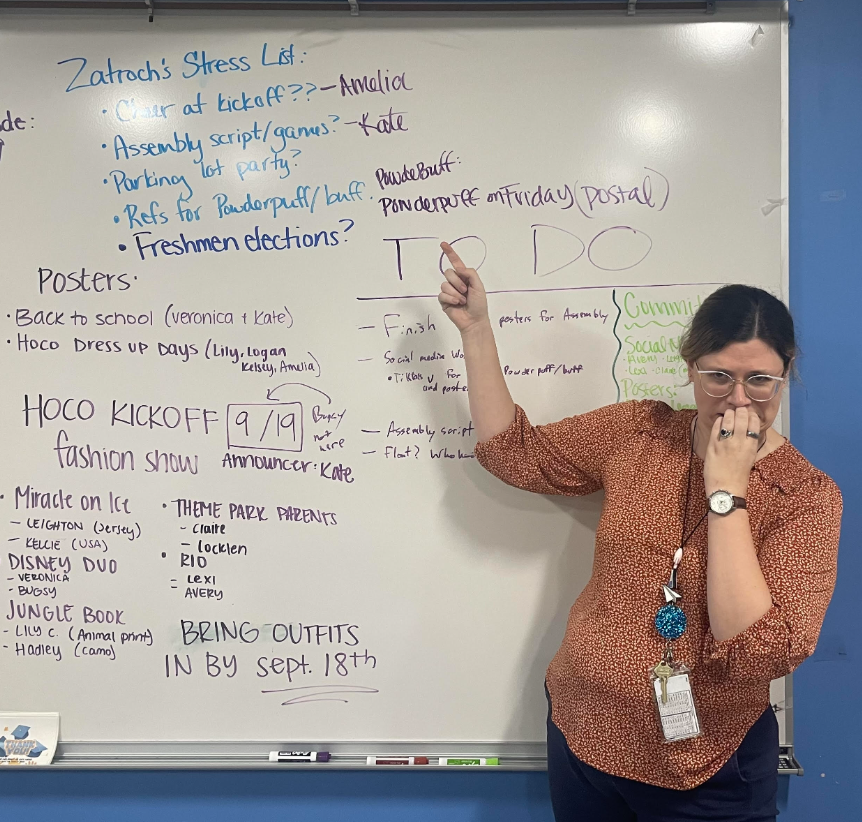 Zatroch's Stress List:
• Cheer at kickoff?? - Amelia
de:
• Assembly script/games? - Kate
• Parking lot party?
• Refs for Powderpuff/buff.
• Freshmen elections?
PowdeBuff:
Powderpuff on Friday (postal)
TO DO
Posters:
• Back to school (Veronica + Kate)
• Hoco Dress up Days (Lily, Logan
Kelsey, Amelia)
HOCO KICKOFF 9/19
Bugsy
not
here
fashion show
Announcer: Kate
• Miracle on Ice
- LEIGHTON (Jersey)
- KELLIE (USA)
DISNEY DUO
- VERONICA
- BUGSY
JUNGLE BOOK
- LILY C. (Animal print)
- Hadley (camo)
• THEME PARK PARENTS
- Claire
- Locklen
• RIO
= Lexi
AVERY
BRING OUTFITS
IN BY Sept. 18th
- Finish posters for Assembly
- Social media
• TikToks for Powderpuff/buff
and
- Assembly script
- Float?
Commit
Social
Posters: